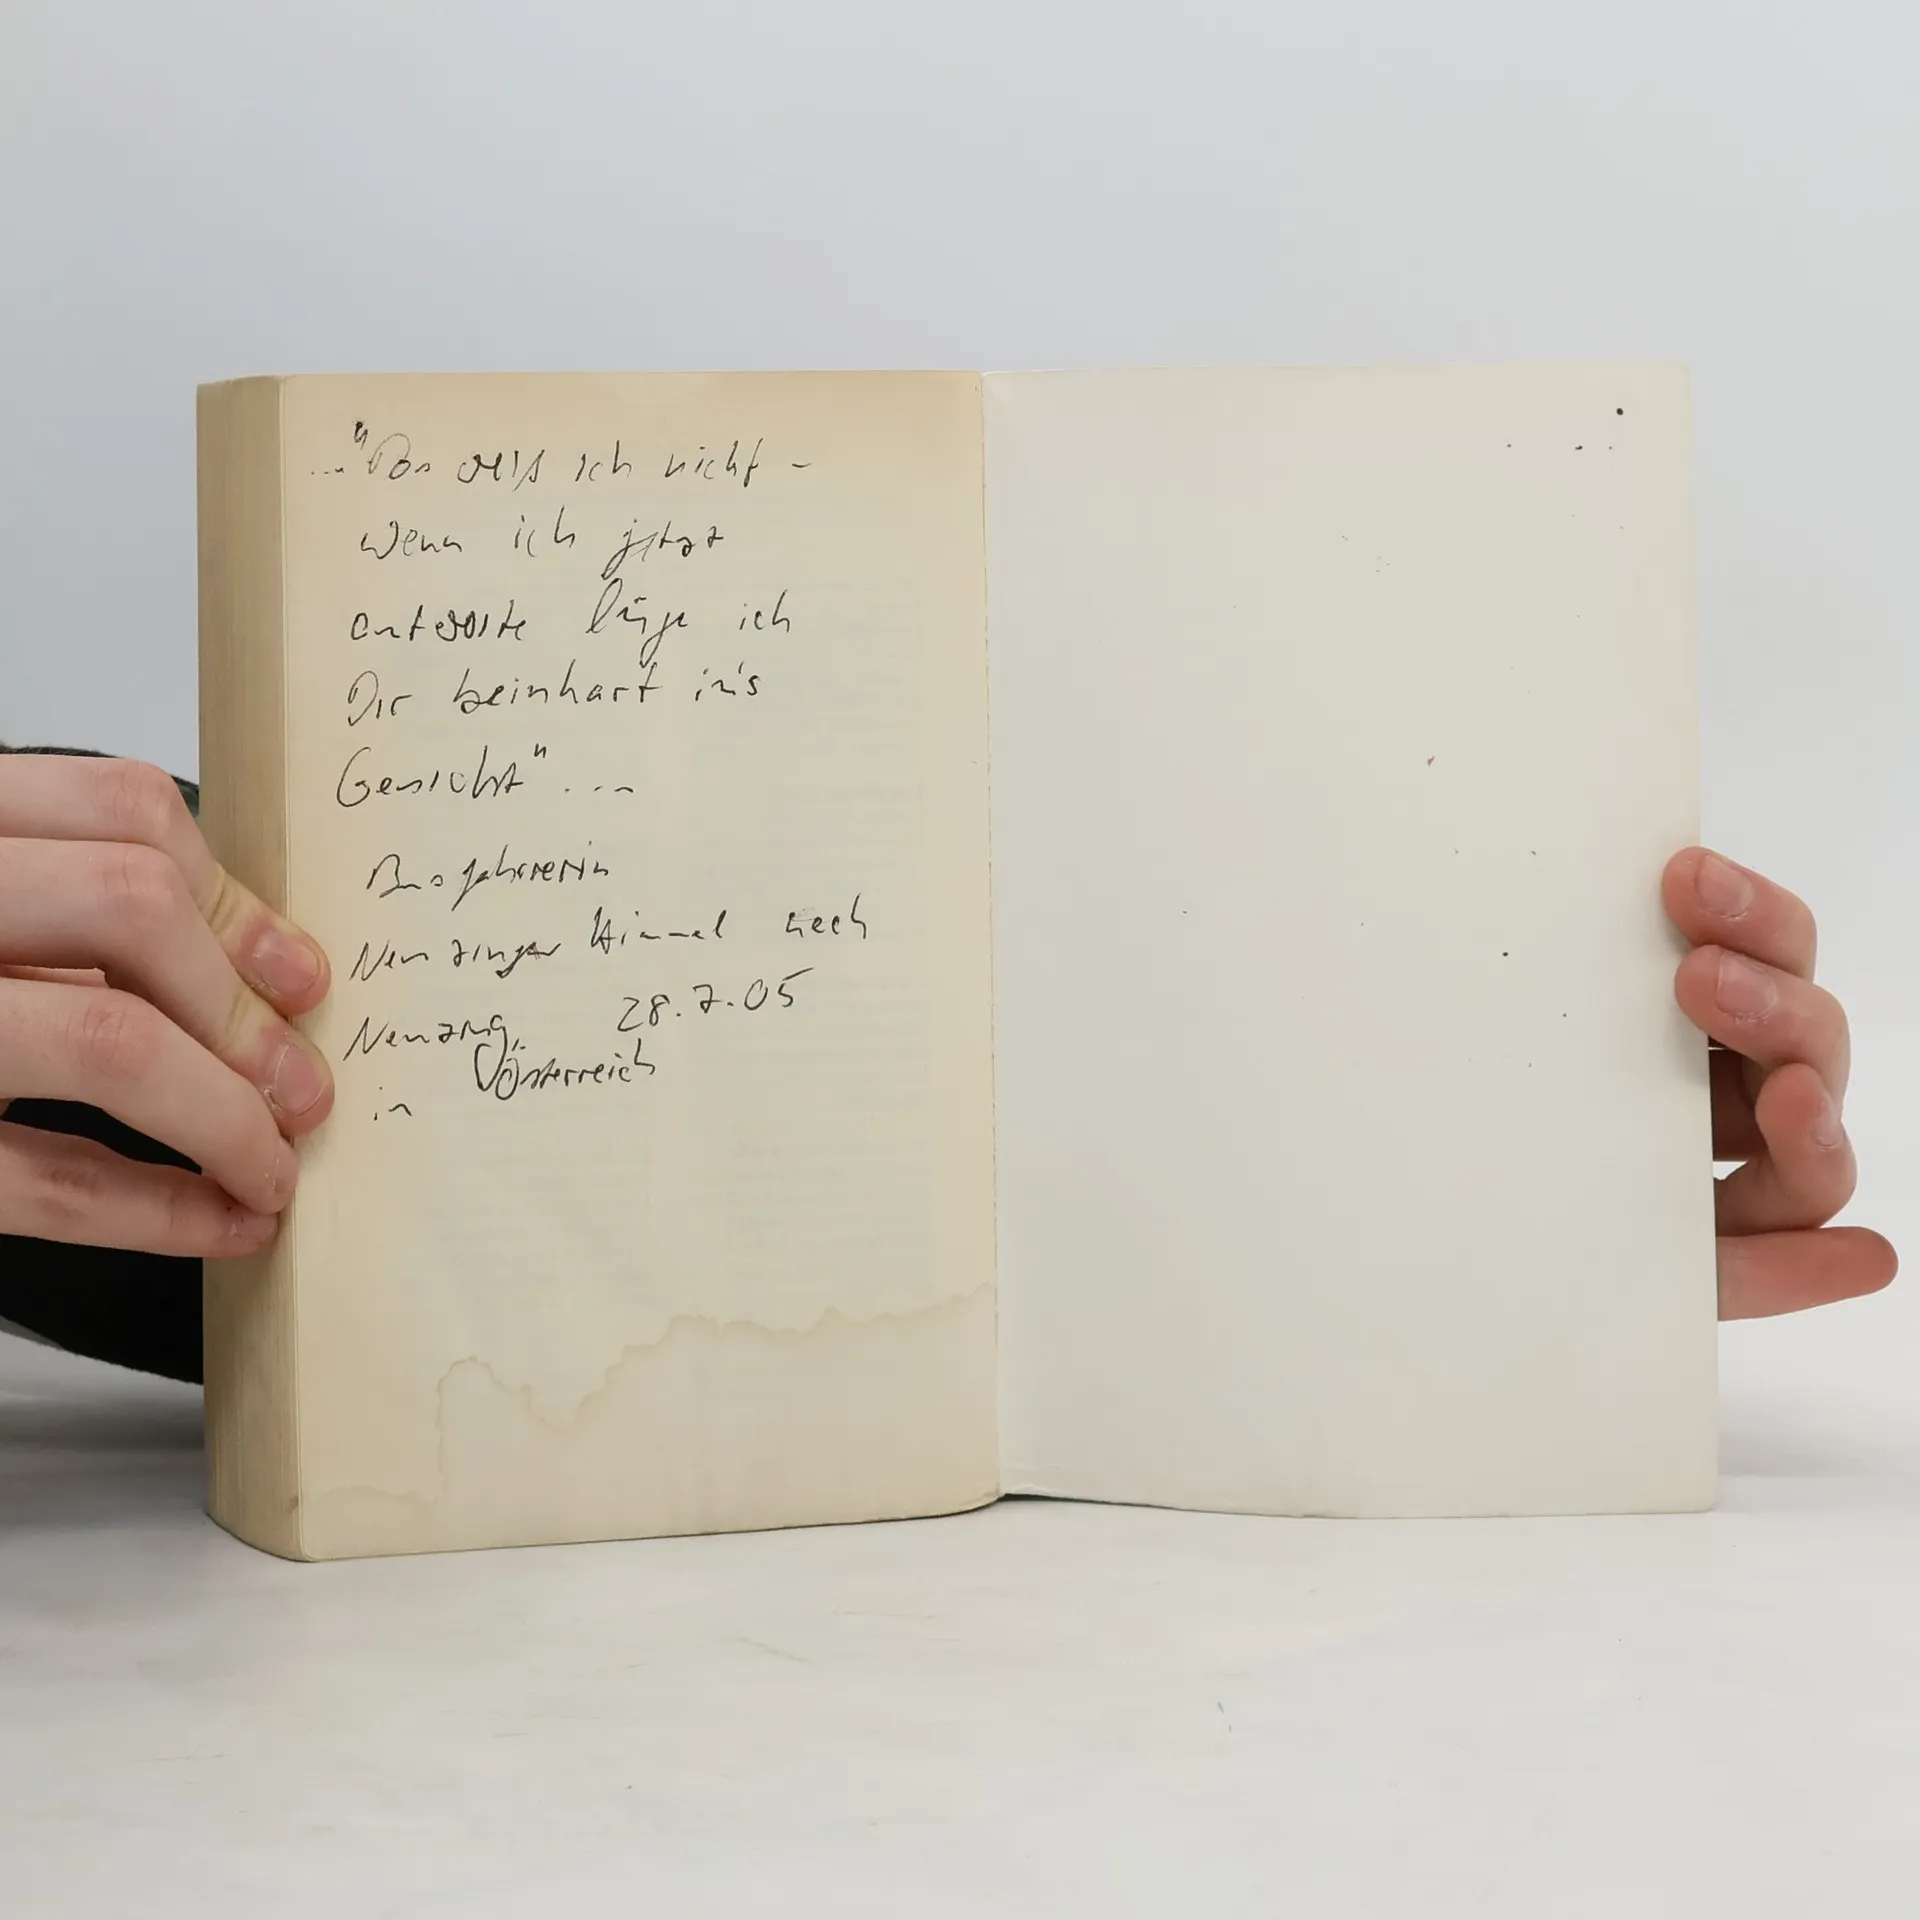 ..."Das weiß ich nicht -
wenn ich jetzt
antworte lüge ich
Dir beinhart in's
Gesicht" ...
Busfahrerin
Nenzinger Himmel nach
Nenzing, 28.7.05
in Österreich